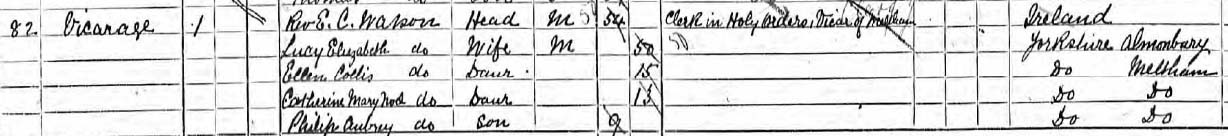 82 Vicarage 1 Rev E. C. Watson Head M 54 Clerk in Holy Orders, Vicar of Meltham Ireland
Lucy Elizabeth do Wife M 50 Yorkshire Almonbury
Ellen Collis do Daur 15 Do Meltham
Catherine Mary do Daur 13 Do Do
Philip Aubrey do Son 9 Do Do